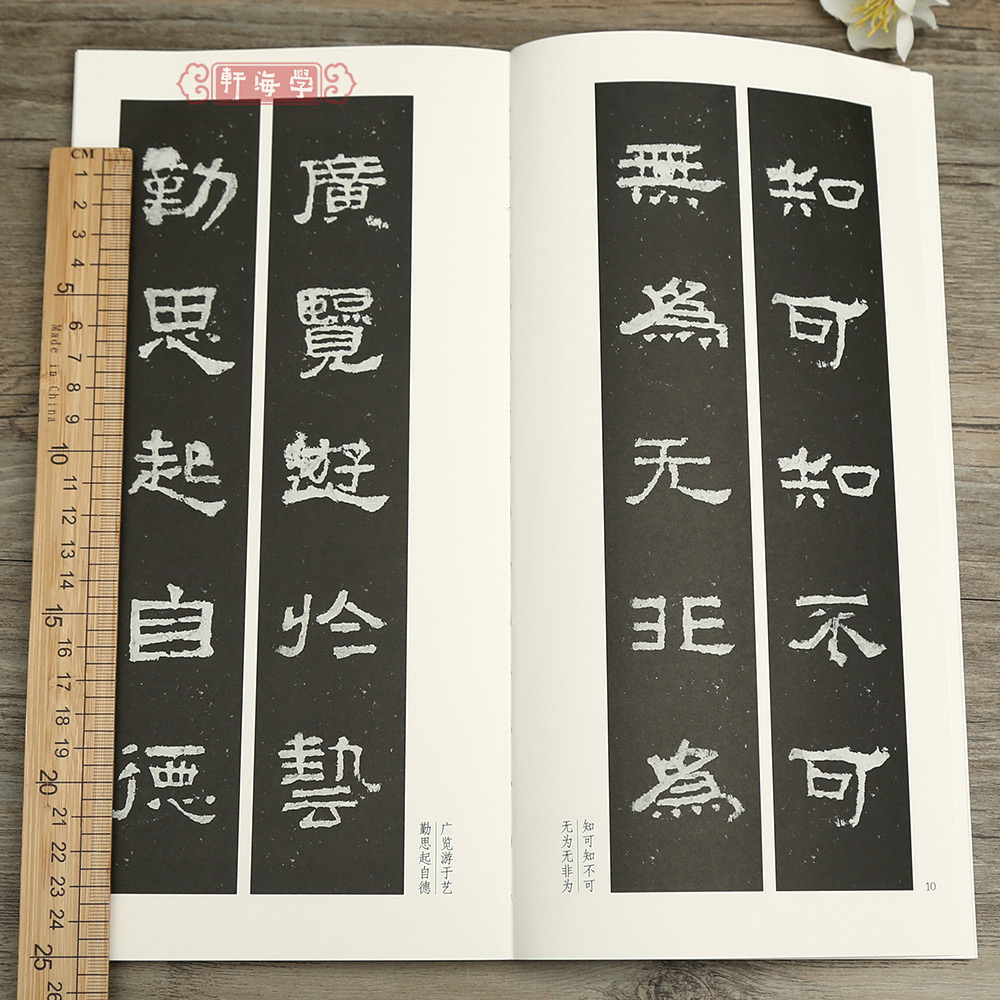 學海軒
知可知不可
無為无非為
知可知不可
无为无非为
10
廣覽遊於藝
勤思起自德
广览游于艺
勤思起自德
CM
1
2
3
4
5
6
7
8
9
10
11
12
13
14
15
16
17
18
19
20
21
22
23
24
25
26
Made in China